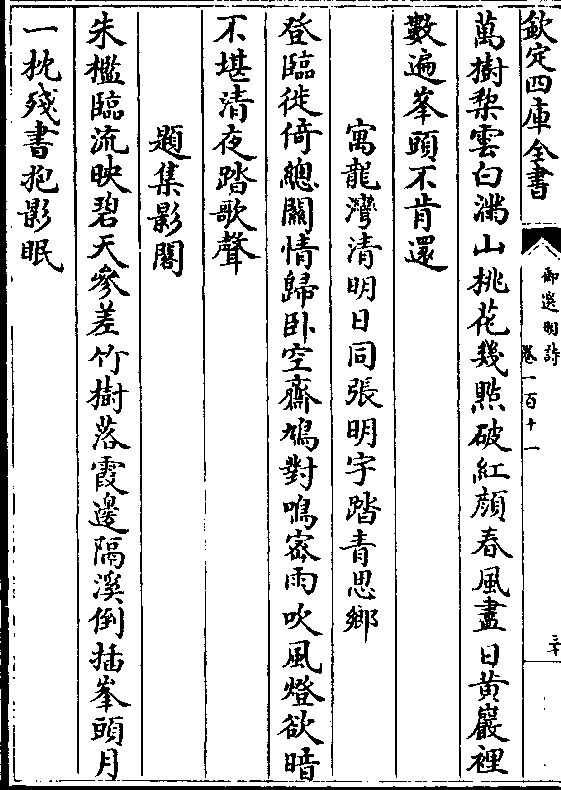 欽定四庫全書
御選明詩
卷一百十一
三十
萬樹梨雲白滿山桃花幾㸃破紅顔春風盡日黄巖裡
數遍峯頭不肯還
寓龍灣清明日同張明宇踏青思鄉
登臨徙倚總關情歸卧空齋鳩對鳴宻雨吹風燈欲暗
不堪清夜踏歌聲
題集影閣
朱檻臨流映碧天參差竹樹落霞邊隔溪倒插峯頭月
一枕殘書抱影眠